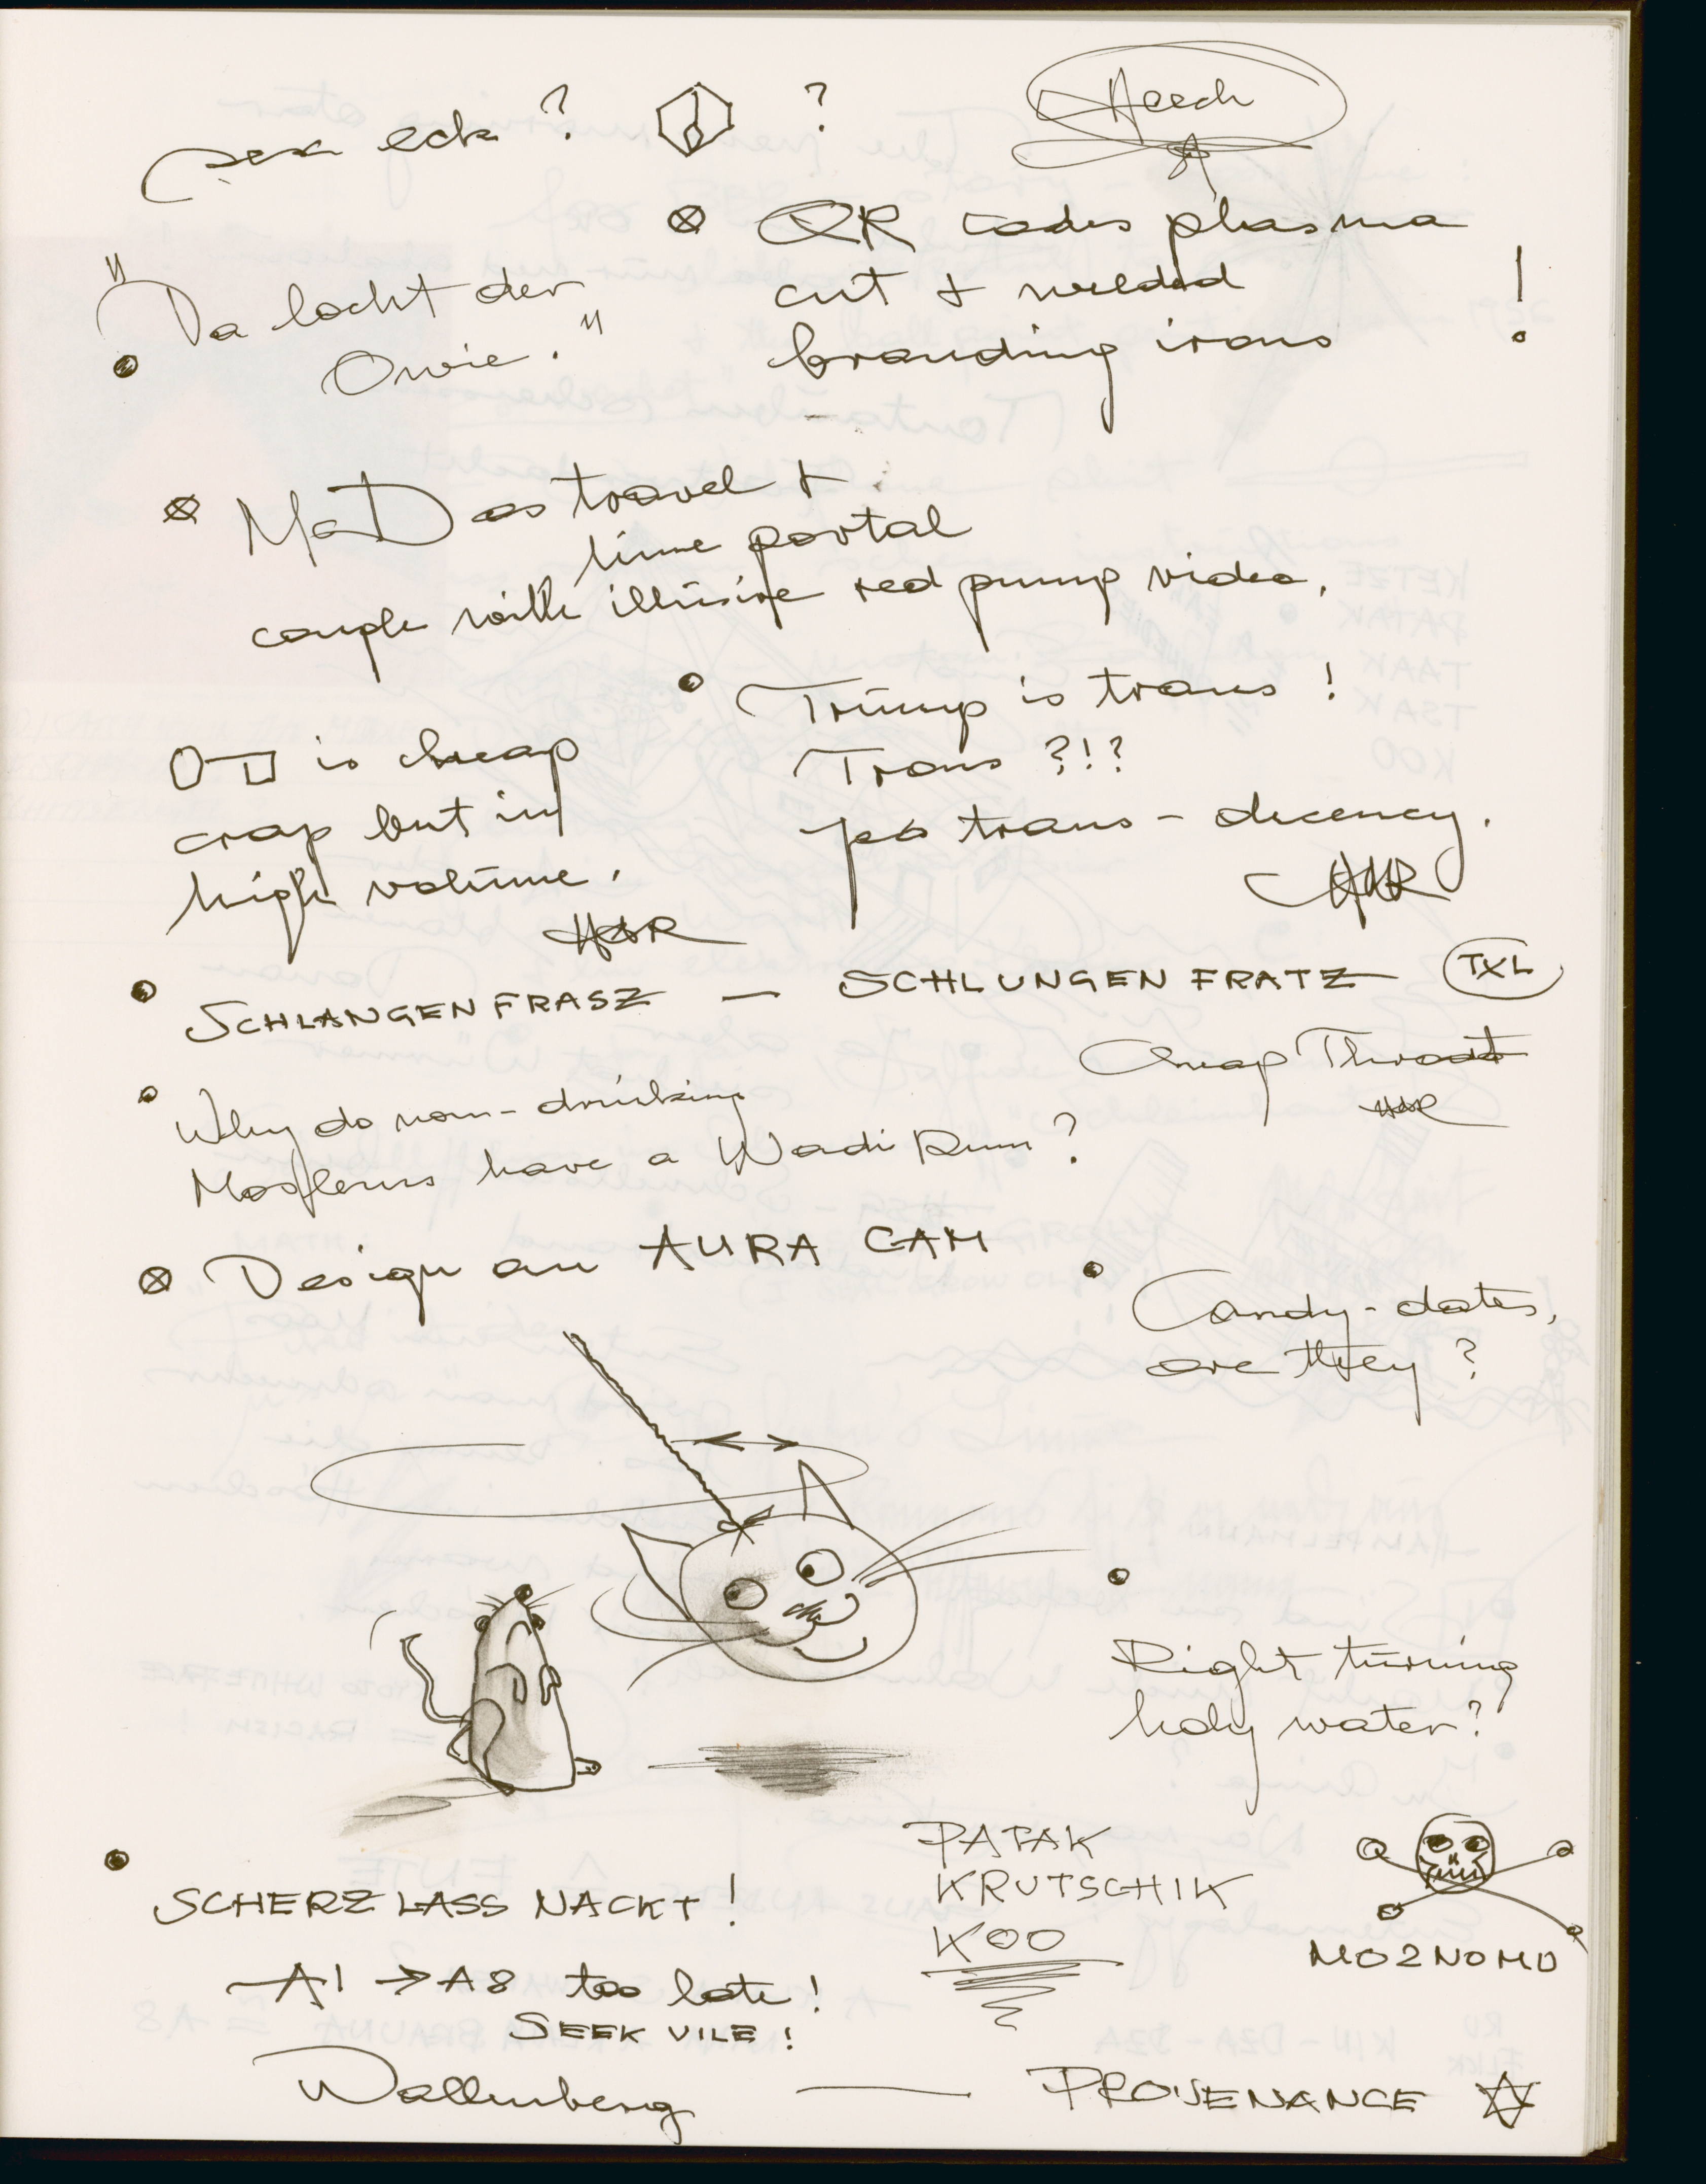 sex eck ? ?
Heech
QR codes plasma
cut + welded
branding irons !
"Da lacht der
Owie."
MaD as travel +
time portal
couple with illusive red pump video.
Trump is trans !
Trans ?!?
yes trans - decency.
HHR
is cheap
crap but in
high volume.
HHR
SCHLANGENFRASZ — SCHLUNGENFRATZ TXL
Cheap Throat
HHR
Why do non-drinking
Moslems have a Wadi Rum ?
Design an AURA CAM
Candy-dates,
are they ?
Right turning
holy water?
PATAK
KRUTSCHIK
KOO
MO2NOMO
SCHERZ LASS NACKT !
A1 → A8 too late !
SEEK VILE !
Wallenberg — PROVENANCE